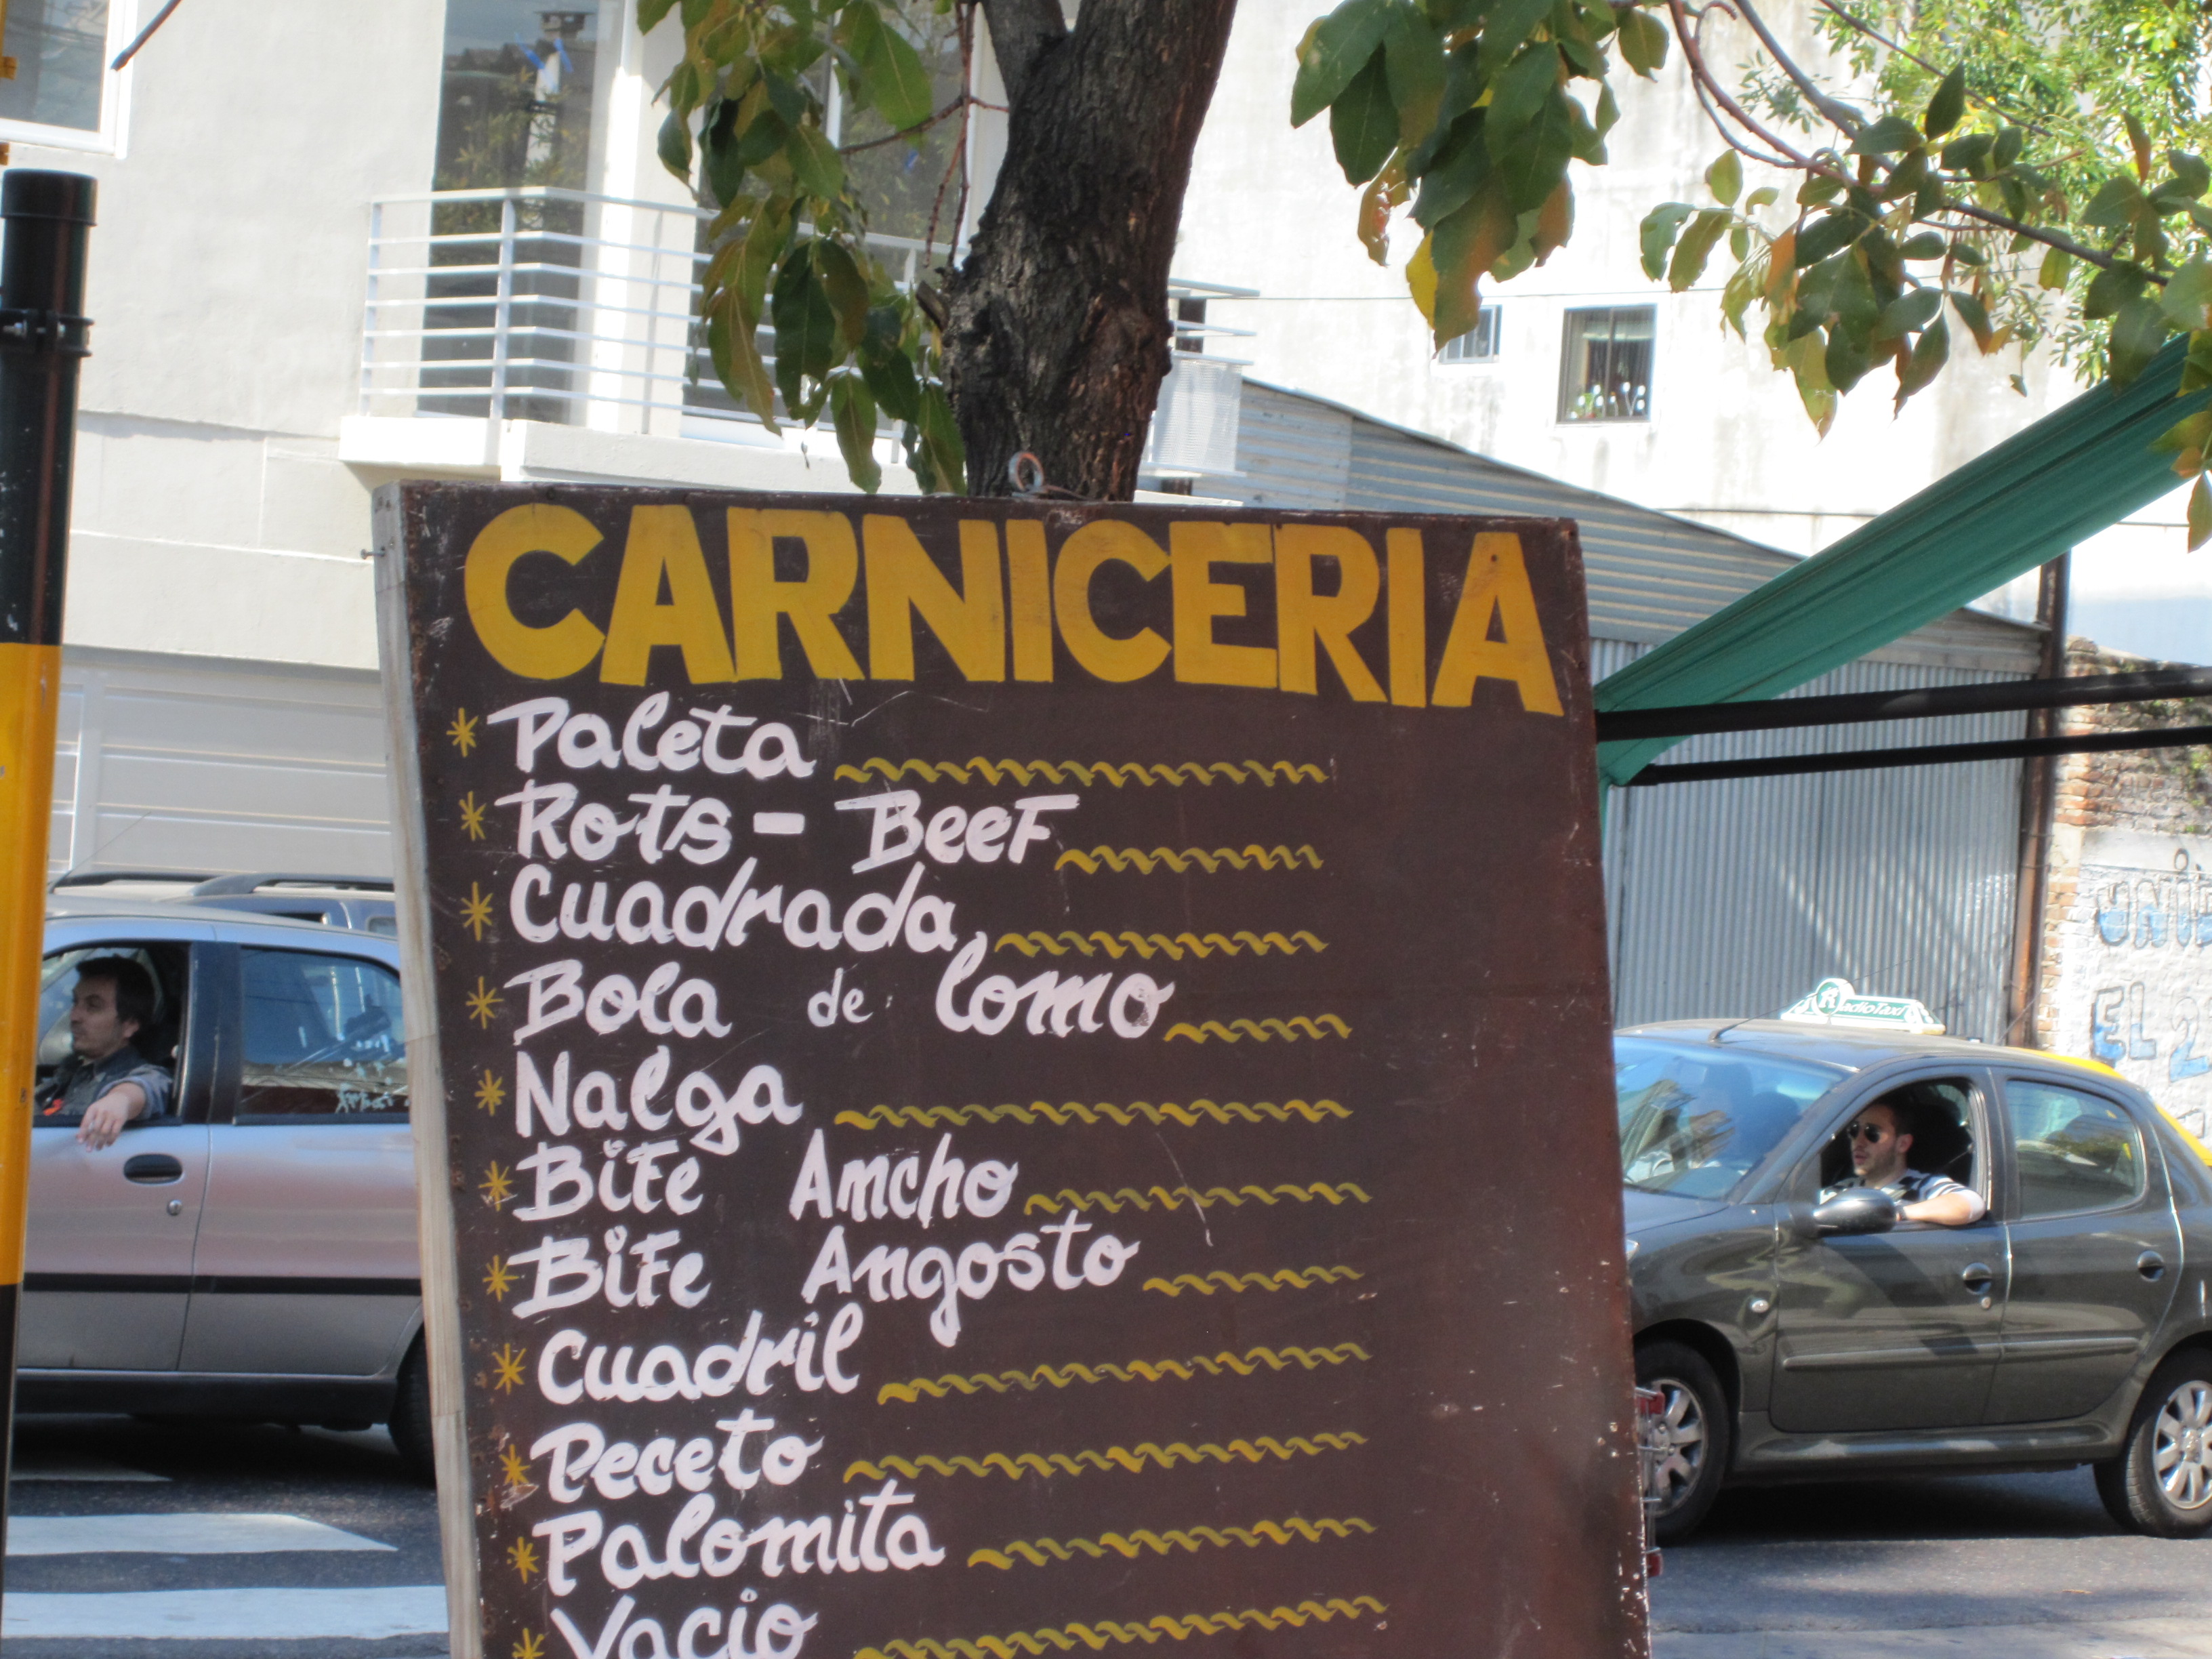 CARNICERIA
* Paleta
* Rots - Beef
* Cuadrada
* Bola de lomo
* Nalga
* Bife Amcho
* Bife Angosto
* Cuadril
* Peceto
* Palomita
* Vacio
RadioTaxi
EL 2